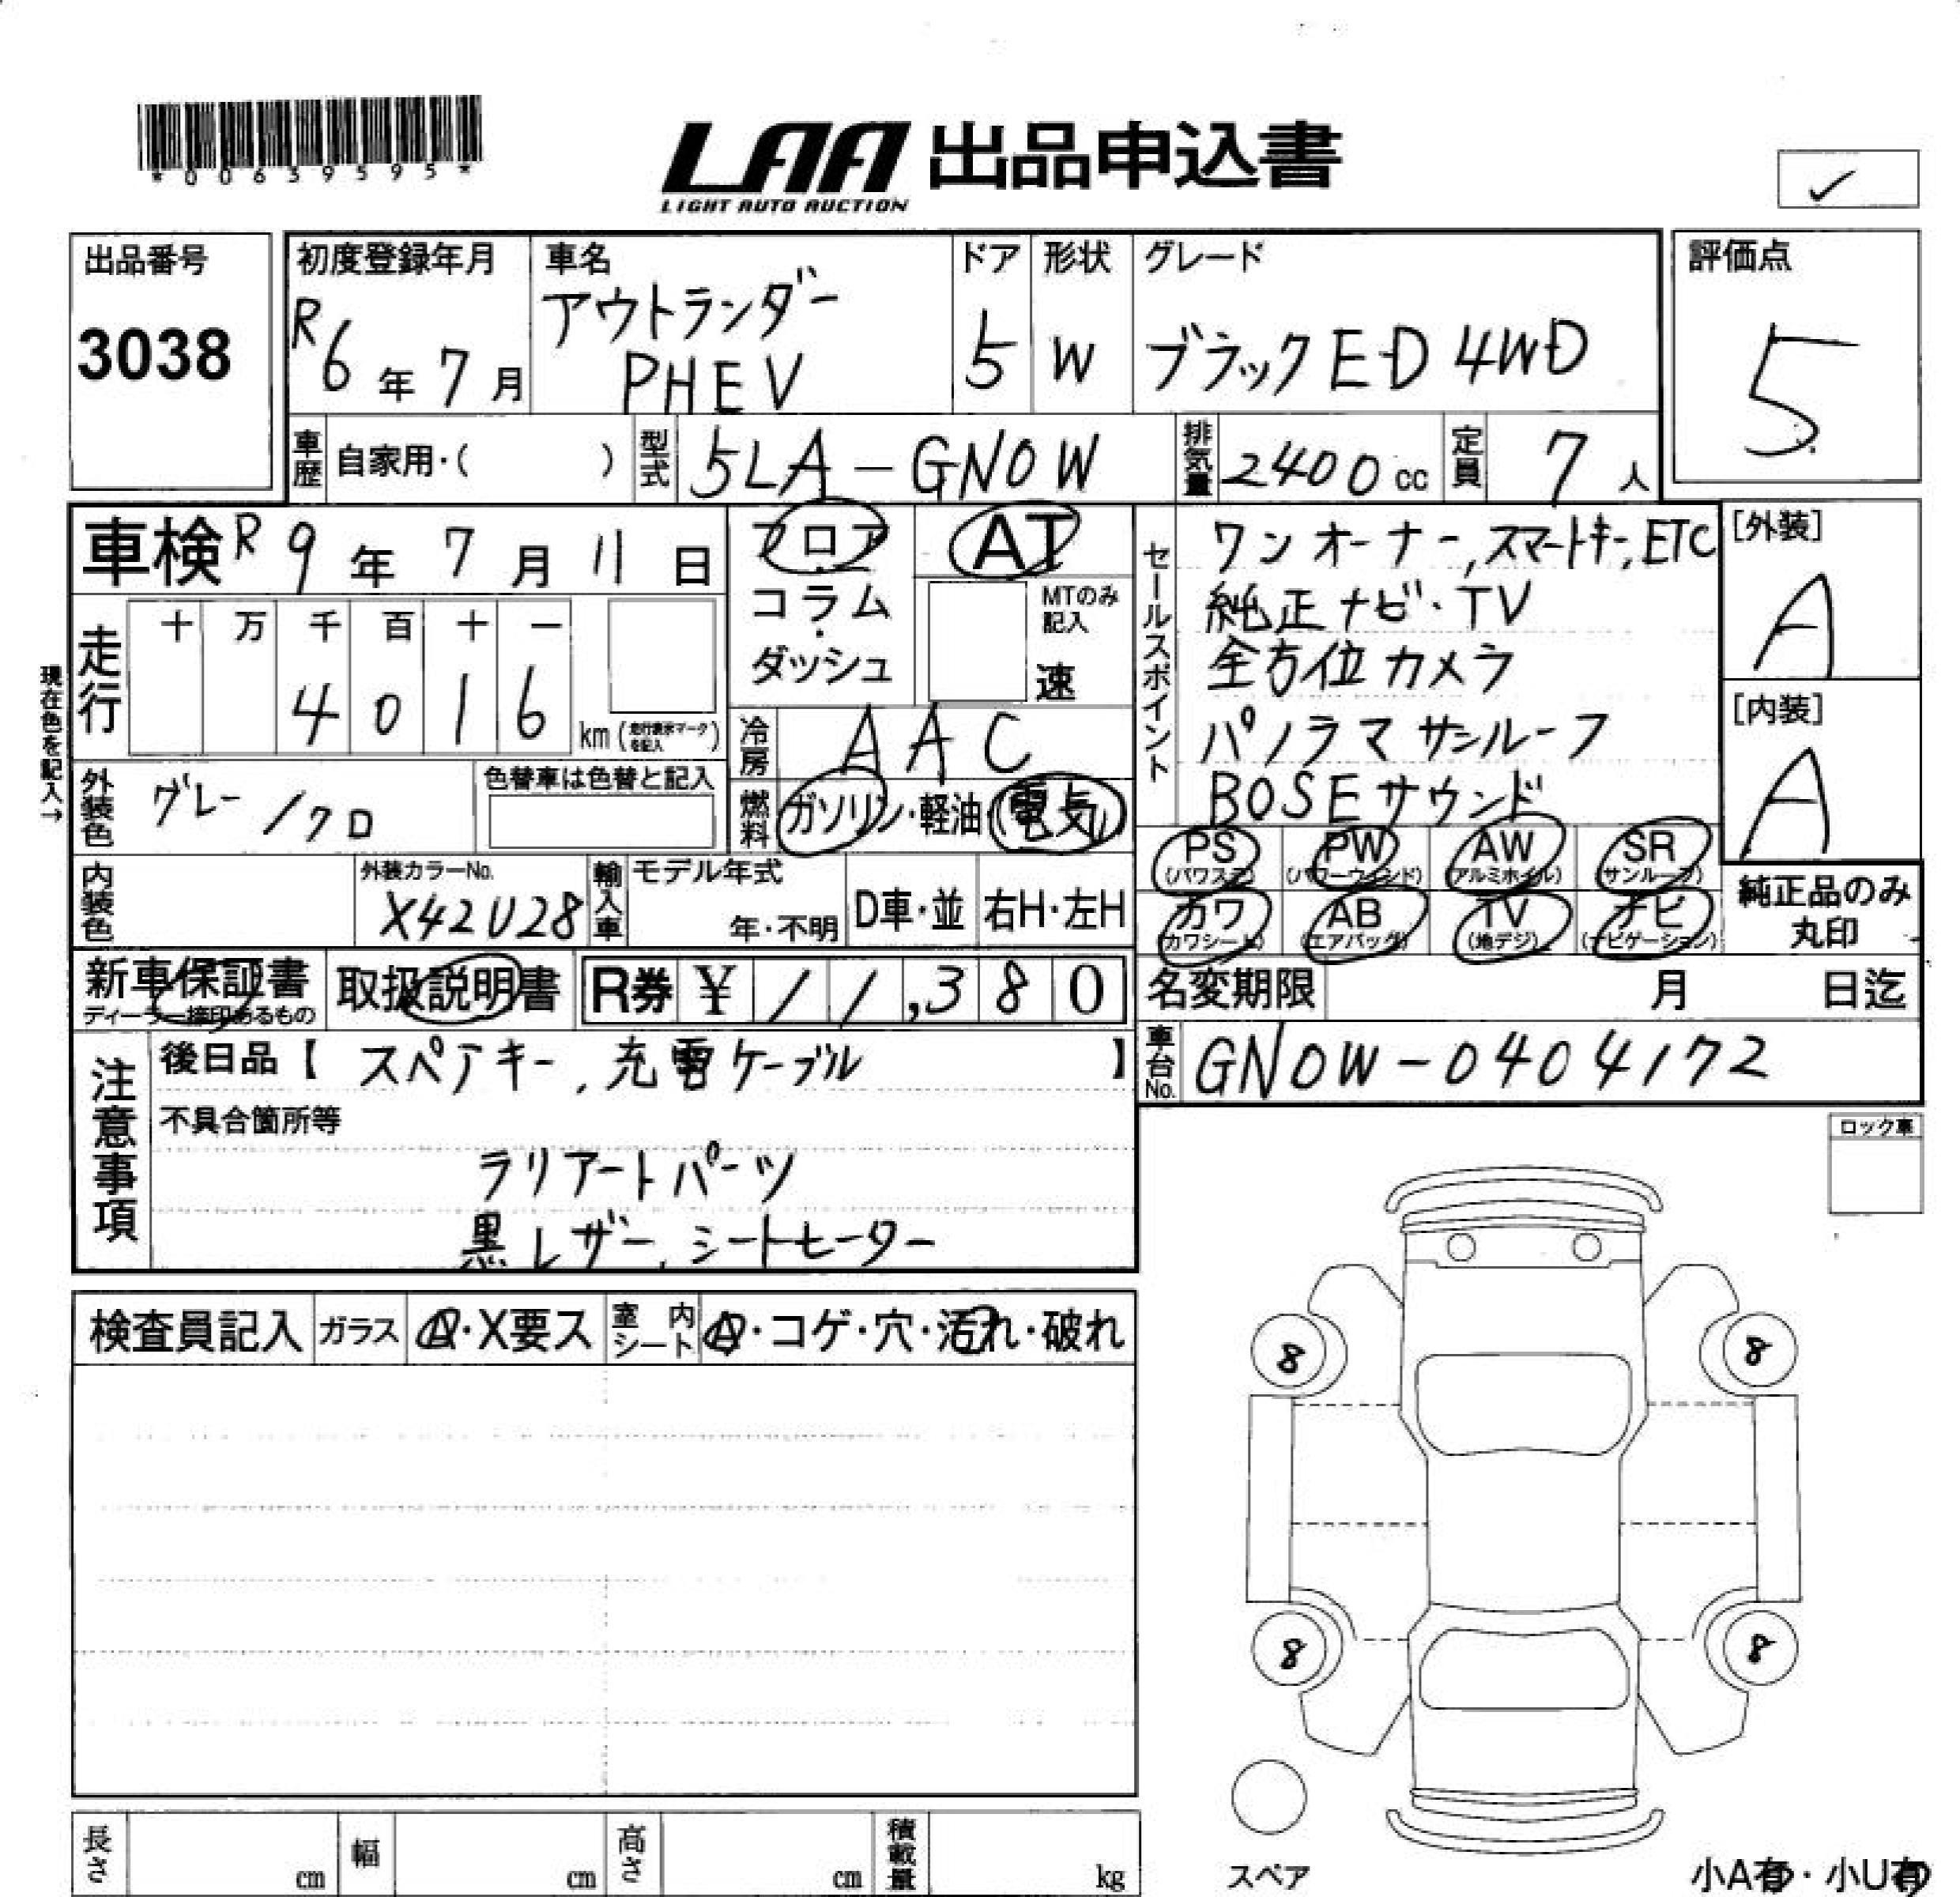 *00639595*
LAA 出品申込書
LIGHT AUTO AUCTION
✓
出品番号
3038
初度登録年月
R6年7月
車名
アウトランダー
PHEV
ドア
5
形状
W
グレード
ブラックED 4WD
評価点
5
車歴
自家用・( )
型式
5LA-GN0W
排気量
2400cc
定員
7人
車検 R9年7月11日
フロア
コラム
・
ダッシュ
AT
MTのみ
記入
速
セールスポイント
ワンオーナー,スマートキー,ETC
純正ナビ・TV
全方位カメラ
パノラマサンルーフ
BOSEサウンド
[外装]
A
[内装]
A
現在色を記入→
走行
十 万 千 百 十 一
4 0 1 6
km(走行表示マークを記入)
冷房
AAC
外装色
グレー/クロ
色替車は色替と記入
燃料
ガソリン・軽油・(電気)
内装色
外装カラーNo.
X42U28
輸入車
モデル年式
年・不明
D車・並
右H・左H
PS
(パワステ)
PW
(パワーウィンド)
AW
(アルミホイル)
SR
(サンルーフ)
カワ
(カワシート)
AB
(エアバッグ)
TV
(地デジ)
ナビ
(ナビゲーション)
純正品のみ
丸印
新車保証書
ディーラー捺印あるもの
取扱説明書
R券 ¥11,380
名変期限
月 日迄
車台No.
GN0W-0404172
注意事項
後日品【 スペアキー,充電ケーブル 】
不具合箇所等
ラリアートパーツ
黒レザー,シートヒーター
ロック車
検査員記入
ガラス
A・X要ス
室内シート
A・コゲ・穴・汚れ・破れ
8
8
8
8
スペア
長さ
cm
幅
cm
高さ
cm
積載量
kg
小A有・小U有